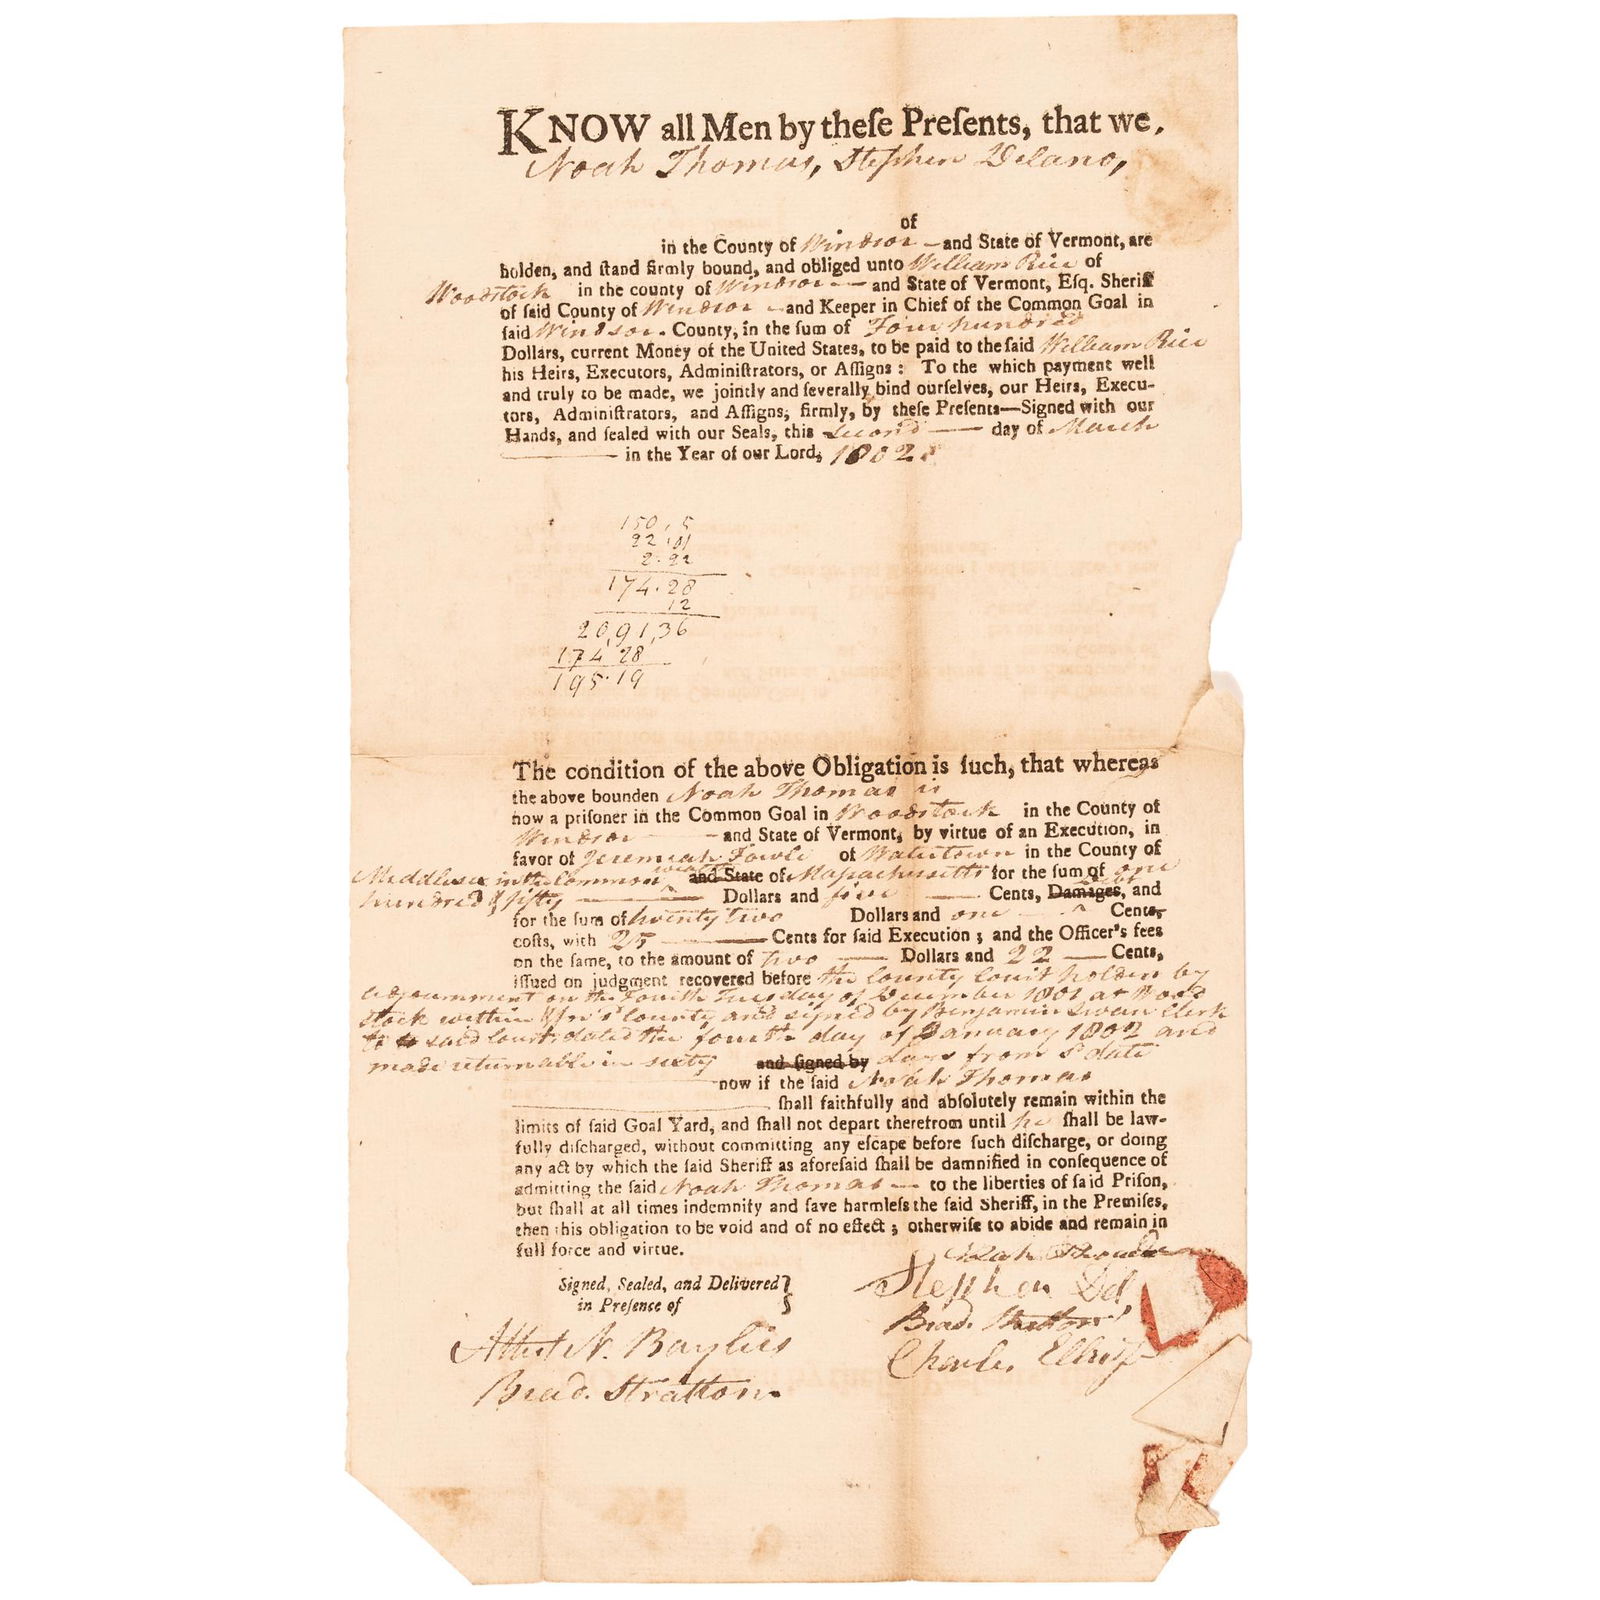 KNOW all Men by theſe Preſents, that we,
Noah Thomas, Stephen Delano,
of
in the County of Windsor — and State of Vermont, are
holden, and ſtand firmly bound, and obliged unto William Rice of
Woodstock in the county of Windsor — and State of Vermont, Eſq. Sheriff
of ſaid County of Windsor — and Keeper in Chief of the Common Goal in
ſaid Windsor. County, in the ſum of Four hundred
Dollars, current Money of the United States, to be paid to the ſaid William Rice
his Heirs, Executors, Adminiſtrators, or Aſſigns: To the which payment well
and truly to be made, we jointly and ſeverally bind ourſelves, our Heirs, Execu-
tors, Adminiſtrators, and Aſſigns, firmly, by theſe Preſents—Signed with our
Hands, and ſealed with our Seals, this second — day of March
— in the Year of our Lord, 1802.
150,5
22,01
2.22
174.28
12
20,91,36
174 28
195.19
The condition of the above Obligation is ſuch, that whereas
the above bounden Noah Thomas is
now a priſoner in the Common Goal in Woodstock in the County of
Windsor — and State of Vermont, by virtue of an Execution, in
favor of Jeremiah Fowle of Watertown in the County of
Middlesex in the Common wealth and State of Massachusetts for the ſum of one
hundred & fifty — Dollars and five — Cents, Damages, debt and
for the ſum of twenty two Dollars and one — Cents,
coſts, with 25 — Cents for ſaid Execution; and the Officer's fees
on the ſame, to the amount of two — Dollars and 22 — Cents,
iſſued on judgment recovered before the County Court holden by
adjournment on the Fourth Tuesday of December 1801 at Wood
stock within & for sd County and signed by Benjamin Swan Clerk
to said Court, dated the fourth day of January 1802 and
made returnable in sixty and ſigned by days from sd date
now if the ſaid Noah Thomas
ſhall faithfully and abſolutely remain within the
limits of ſaid Goal Yard, and ſhall not depart therefrom until he ſhall be law-
fully diſcharged, without committing any eſcape before ſuch diſcharge, or doing
any act by which the ſaid Sheriff as aforeſaid ſhall be damnified in conſequence of
admitting the ſaid Noah Thomas — to the liberties of ſaid Priſon,
but ſhall at all times indemnify and ſave harmleſs the ſaid Sheriff, in the Premiſes,
then this obligation to be void and of no effect; otherwiſe to abide and remain in
full force and virtue.
Noah Thomas
Signed, Sealed, and Delivered
Stephen Del
in Preſence of
Brad. Stratton
Albert N. Baylies
Charles
Brad. Stratton